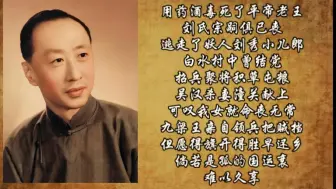 用药酒毒死了平帝老王
刘氏宗嗣俱已丧
逃走了妖人刘秀小儿郎
白水村中曾结党
招兵聚将积草屯粮
吴汉杀妻潼关献上
可叹我女就命丧无常
九梁王亲自领兵把贼挡
但愿得旗开得胜早还乡
倘若是孤的国运衰
难以久享